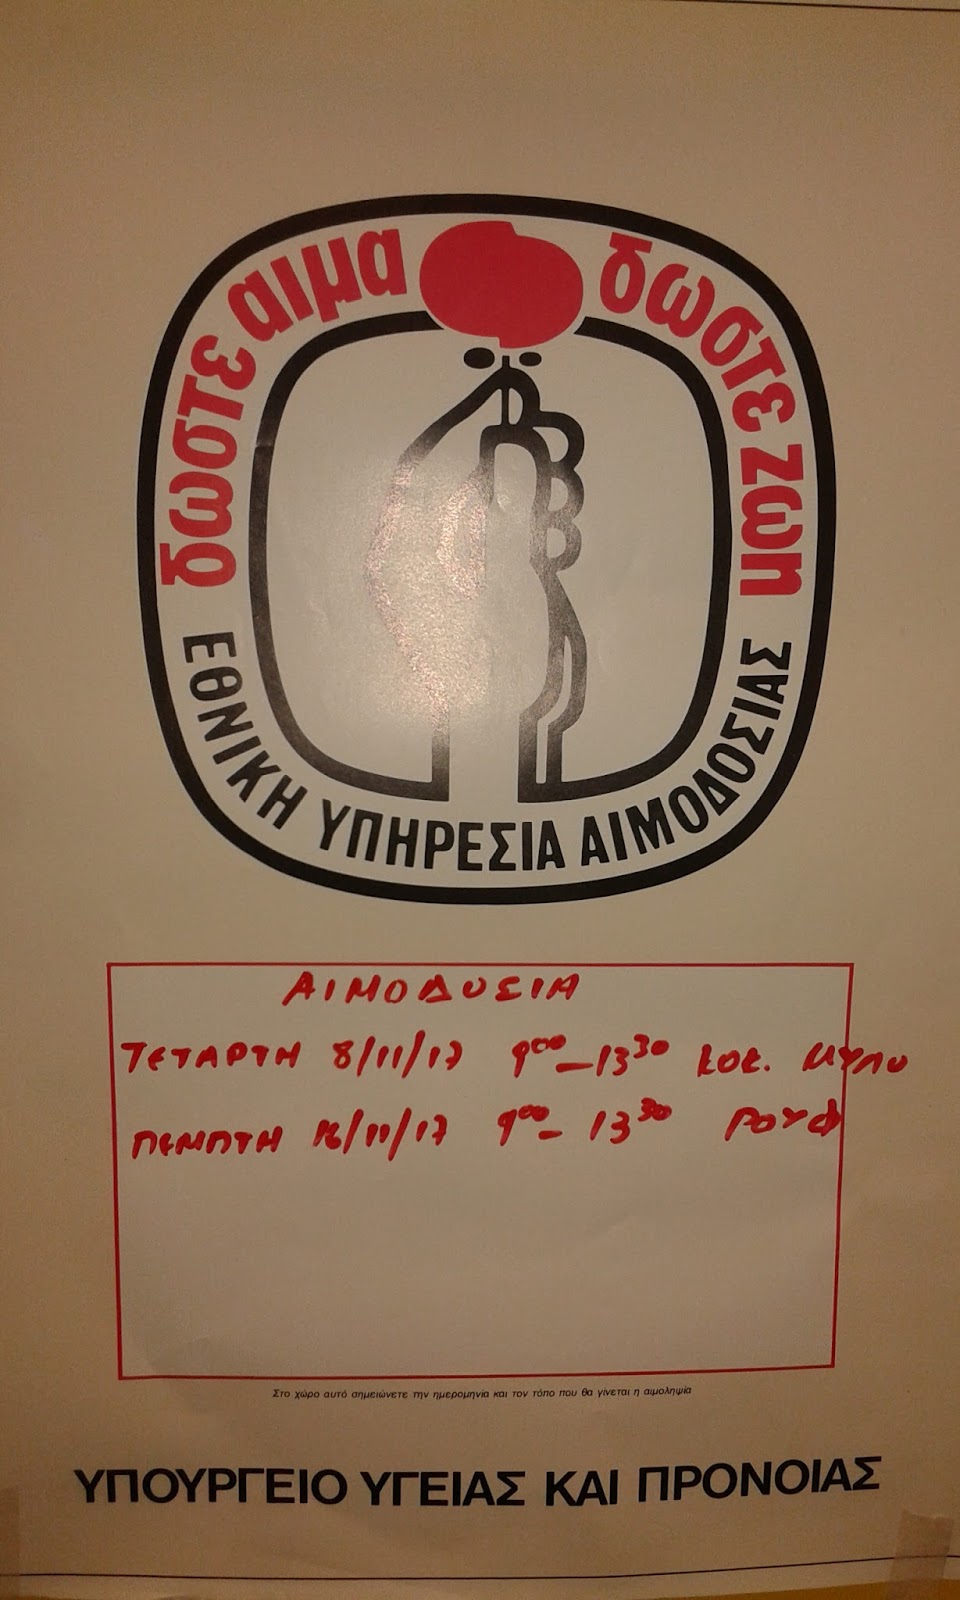 δωστε αιμα δωστε ζωη
ΕΘΝΙΚΗ ΥΠΗΡΕΣΙΑ ΑΙΜΟΔΟΣΙΑΣ
ΑΙΜΟΔΟΣΙΑ
ΤΕΤΑΡΤΗ 8/11/17 9⁰⁰–13³⁰ ΚΟΚ. ΜΥΛΟ
ΠΕΜΠΤΗ 16/11/17 9⁰⁰–13³⁰ ΡΟΥΦ
Στο χώρο αυτό σημειώνετε την ημερομηνία και τον τόπο που θα γίνεται η αιμοληψία
ΥΠΟΥΡΓΕΙΟ ΥΓΕΙΑΣ ΚΑΙ ΠΡΟΝΟΙΑΣ